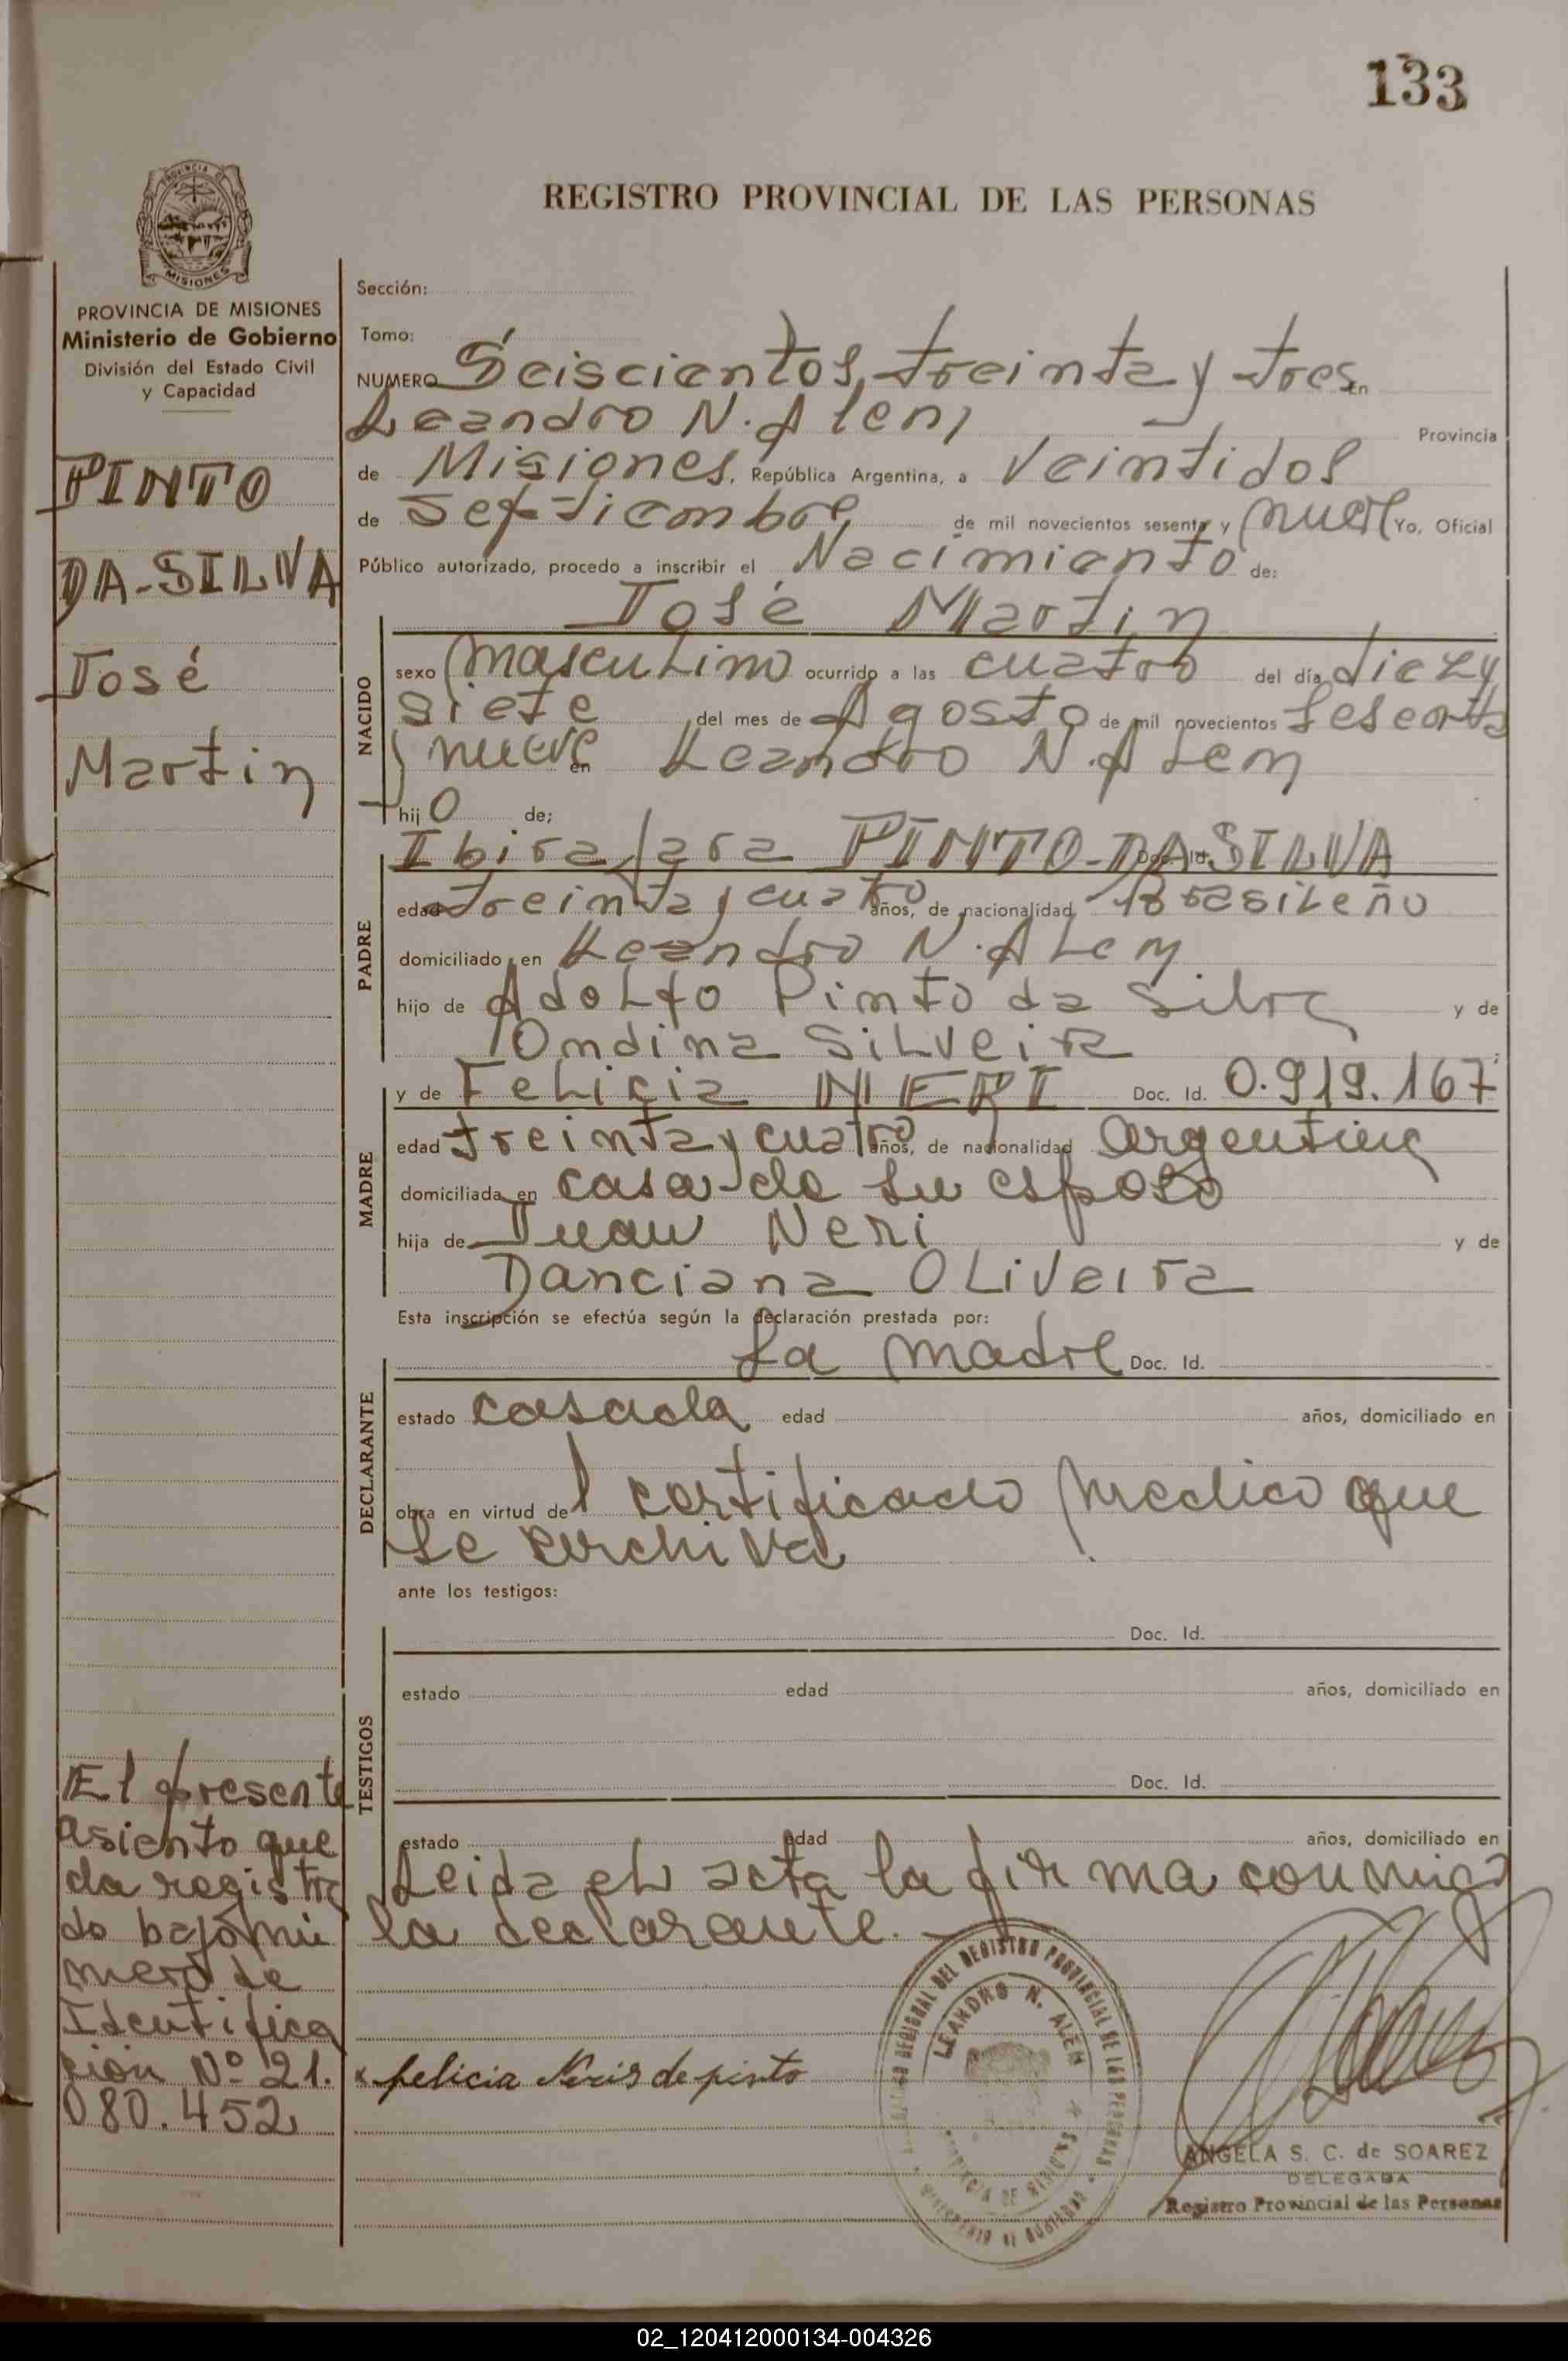 133
REGISTRO PROVINCIAL DE LAS PERSONAS
PROVINCIA DE MISIONES
Ministerio de Gobierno
División del Estado Civil
y Capacidad
PINTO
DA-SILVA
José
Martin
El presente
asiento que
da registra
do bajo nú
mero de
Identifica
ción Nº 21.
080.452
Sección:
Tomo:
NUMERO Seiscientos, treinta y tres en
Leandro N. Alem, Provincia
de Misiones, República Argentina, a Veintidos
de Septiembre de mil novecientos sesenta y nueve Yo, Oficial
Público autorizado, procedo a inscribir el Nacimiento de:
José Martin
NACIDO
sexo masculino ocurrido a las cuatro del día diez y
siete del mes de Agosto de mil novecientos sesenta
y nueve en Leandro N. Alem
hijo de;
PADRE
Ibirajara PINTO-DA SILVA Doc. Id.
edad treinta y cuatro años, de nacionalidad Brasileño
domiciliado en Leandro N. Alem
hijo de Adolfo Pinto da Silva y de
Ondina Silveira
MADRE
y de Felicia NERI Doc. Id. 0.919.167
edad treinta y cuatro años, de nacionalidad argentina
domiciliada en casa de su esposo
hija de Juan Neri y de
Danciana Oliveira
Esta inscripción se efectúa según la declaración prestada por:
DECLARANTE
La madre Doc. Id.
estado casada edad años, domiciliado en
obra en virtud del certificado medico que
se archiva
ante los testigos:
TESTIGOS
Doc. Id.
estado edad años, domiciliado en
Doc. Id.
estado edad años, domiciliado en
Leida el acta la firma conmigo
la declarante.
x felicia Neris de pinto
LEANDRO N. ALEM
ANGELA S. C. de SOAREZ
DELEGADA
Registro Provincial de las Personas
02_120412000134-004326